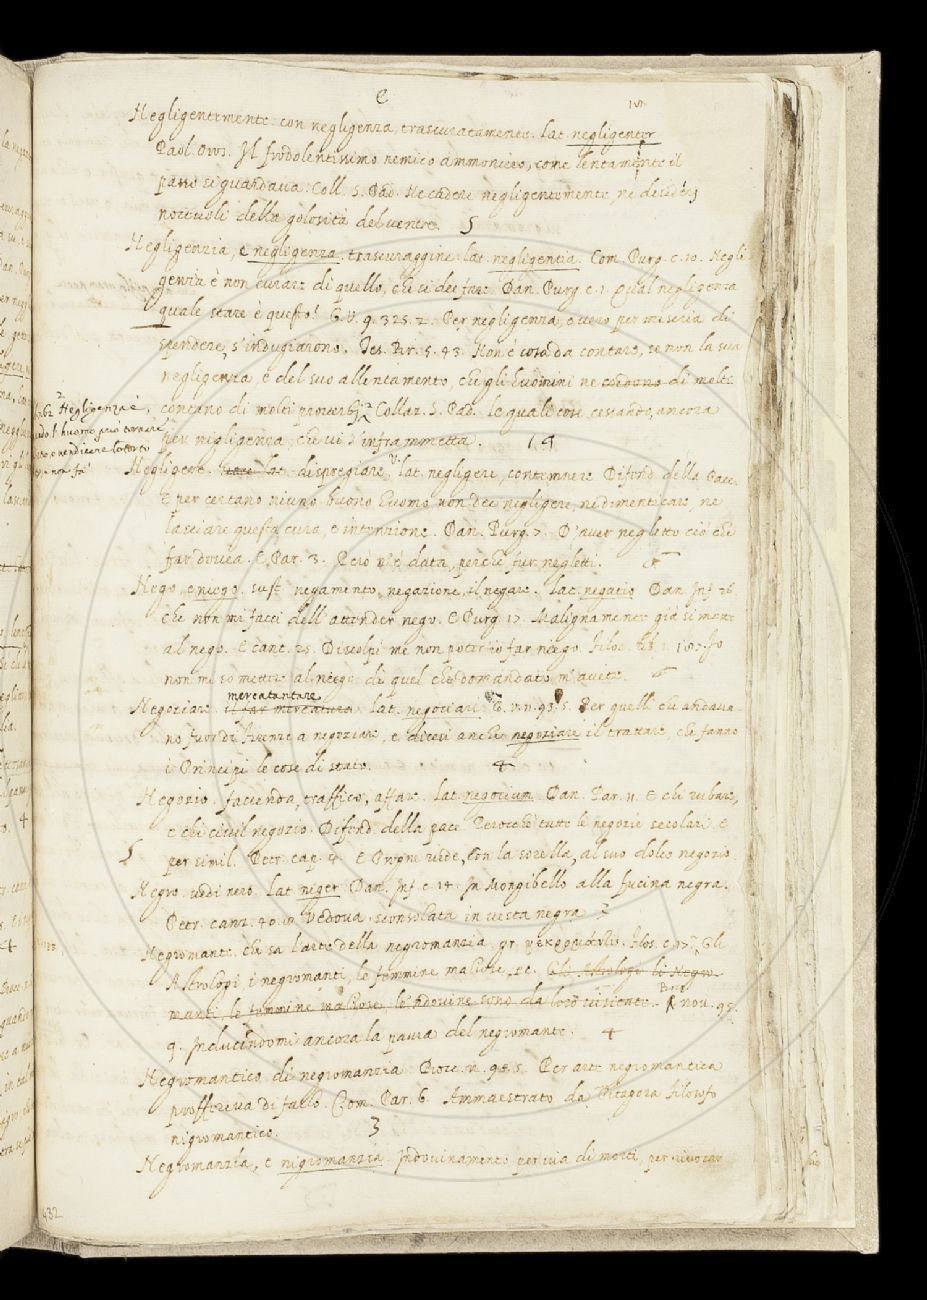 e
Negligentemente. con negligenza, trascuratamente. lat. negligenter
Paol. Oros. Il frodolentissimo nemico ammonireo, come lentamente il
passo si guardava. Coll. S. Pad. Ne cadere negligentemente ne desiderj
nocevoli della golosità del ventre. 5
Negligenzia, e negligenza. trascuraggine. lat. negligentia. Com. Purg. c. 10. Negli
genzia è non curare di quello, che si dee fare. Dan. Purg. c. 1. Qual negligenza
quale stare è questo! G. V. 9. 325. 2. Per negligenza, ovvero per miseria di
spendere, s'indugiarono. Tes. Br. 5. 43. Non è cosa da contare, se non la sua
negligenza, e del suo allentamento, che gli huomini ne contano di molti
contano di molti proverbj. Collaz. S. Pad. le quali cose cessando, ancora
per nigligenza, che vi s'inframmetta. 14
2 Negligenza è,
huomo può tornare
e rendere lo torto
non fa
Negligere. lat. dispregiare, lat. negligere, contemnere. Difend. della Pace.
E per certano niuno buono huomo non dee negligere, ne dimenticare, ne
lasciare questa cura, e intenzione. Dan. Purg. 7. D'aver negletto ciò che
far dovea. E Par. 3. Però n'è data, perchè fur negletti.
Nego, e niego. sust. negamento, negazione, il negare. lat. negatio. Dan. Inf. 26
che non mi facci dell'attender nego. E Purg. 17. Malignamente già si mette
al nego. E cant. 25. Discolpi me non poter io far niego. Filoc. lib. 1. 100. Io
non mi so mettere al niego di quel che domandato m'avete.
mercatantare
Negoziare. il far mercatura. lat. negociari. G. V. 11. 93. 5. Per quelli che andava
no fuor di Firenze a negoziare, e dicesi anche negoziare il trattare, che fanno
i Principi le cose di stato. 4
Negozio. faccenda, traffico, affare. lat. negotium. Dan. Par. 11. E chi rubare,
e chi civil negozio. Difend. della pace. Perocchè tutte le negozie secolari. E
5 per simil. Petr. cap. 4. E Pigmeride, con la sorella, al suo dolce negozio.
Negro. vedi nero. lat. niger. Dan. Inf. c. 14. In Mongibello alla fucina negra.
Petr. canz. 40. 10. Vedova sconsolata in vesta negra. 3
Negromante. che sa l'arte della negromanzia. gr. Filos. c. 97. Gli
Astrologi, i negromanti, le femmine maliose, ec. Gli Astrologi li Negro-
manti, le femmine maliose, le 'ndovine sono da loro Bocc. nov. 95.
9. Inducendovi ancora la paura del negromante. 4
Negromantico. di negromanzia. Bocc. n. 95. 5. Per arte negromantica
proffereva di farlo. Com. Par. 6. Ammaestrato da Pitagora filosofo
nigromantico. 3
Negromanzia, e nigromanzia. Indovinamento per via di morti, per rivocar
432